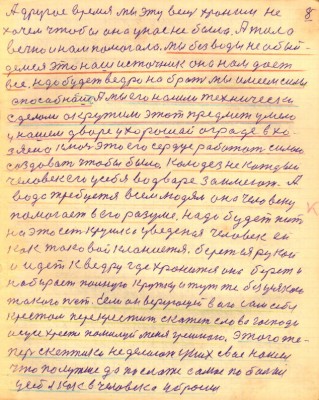 8
А другое время мы эту вещ храним не
хочем чтобы она у нас не была. А тело
велко и нам помогало. Мы без воды не обый-
демся это наш источник она нам дает
все. Надо будет ведро набрать мы имеем силы
способности А мы его нашли технически
сделали окрутили этот предмет умело
у нашем дворе у хорошай ограде в хо-
зяено ключ Это его сердце работат силы
создовать чтобы было. Колодез не каждый
человек его у себя во дворе занимают. А
вода требуется всем людям она человеку
помогает в его разуме. Надо будет пить
на это ест кружка уведеная человек ей
как таковой кланяется. берет я рукой
и идет к ведру где хронится она берет и
набирает полную кружку и тут же без всякого
такого пет. Если он верующий в его сам себя
крестом перекрестит скажет слова господи
исусе христе помилуй меня грешного. Этого те-
перс кеттака не делают у них свое нашей
что получше да послаже само по башки
у себя как в человека и броси